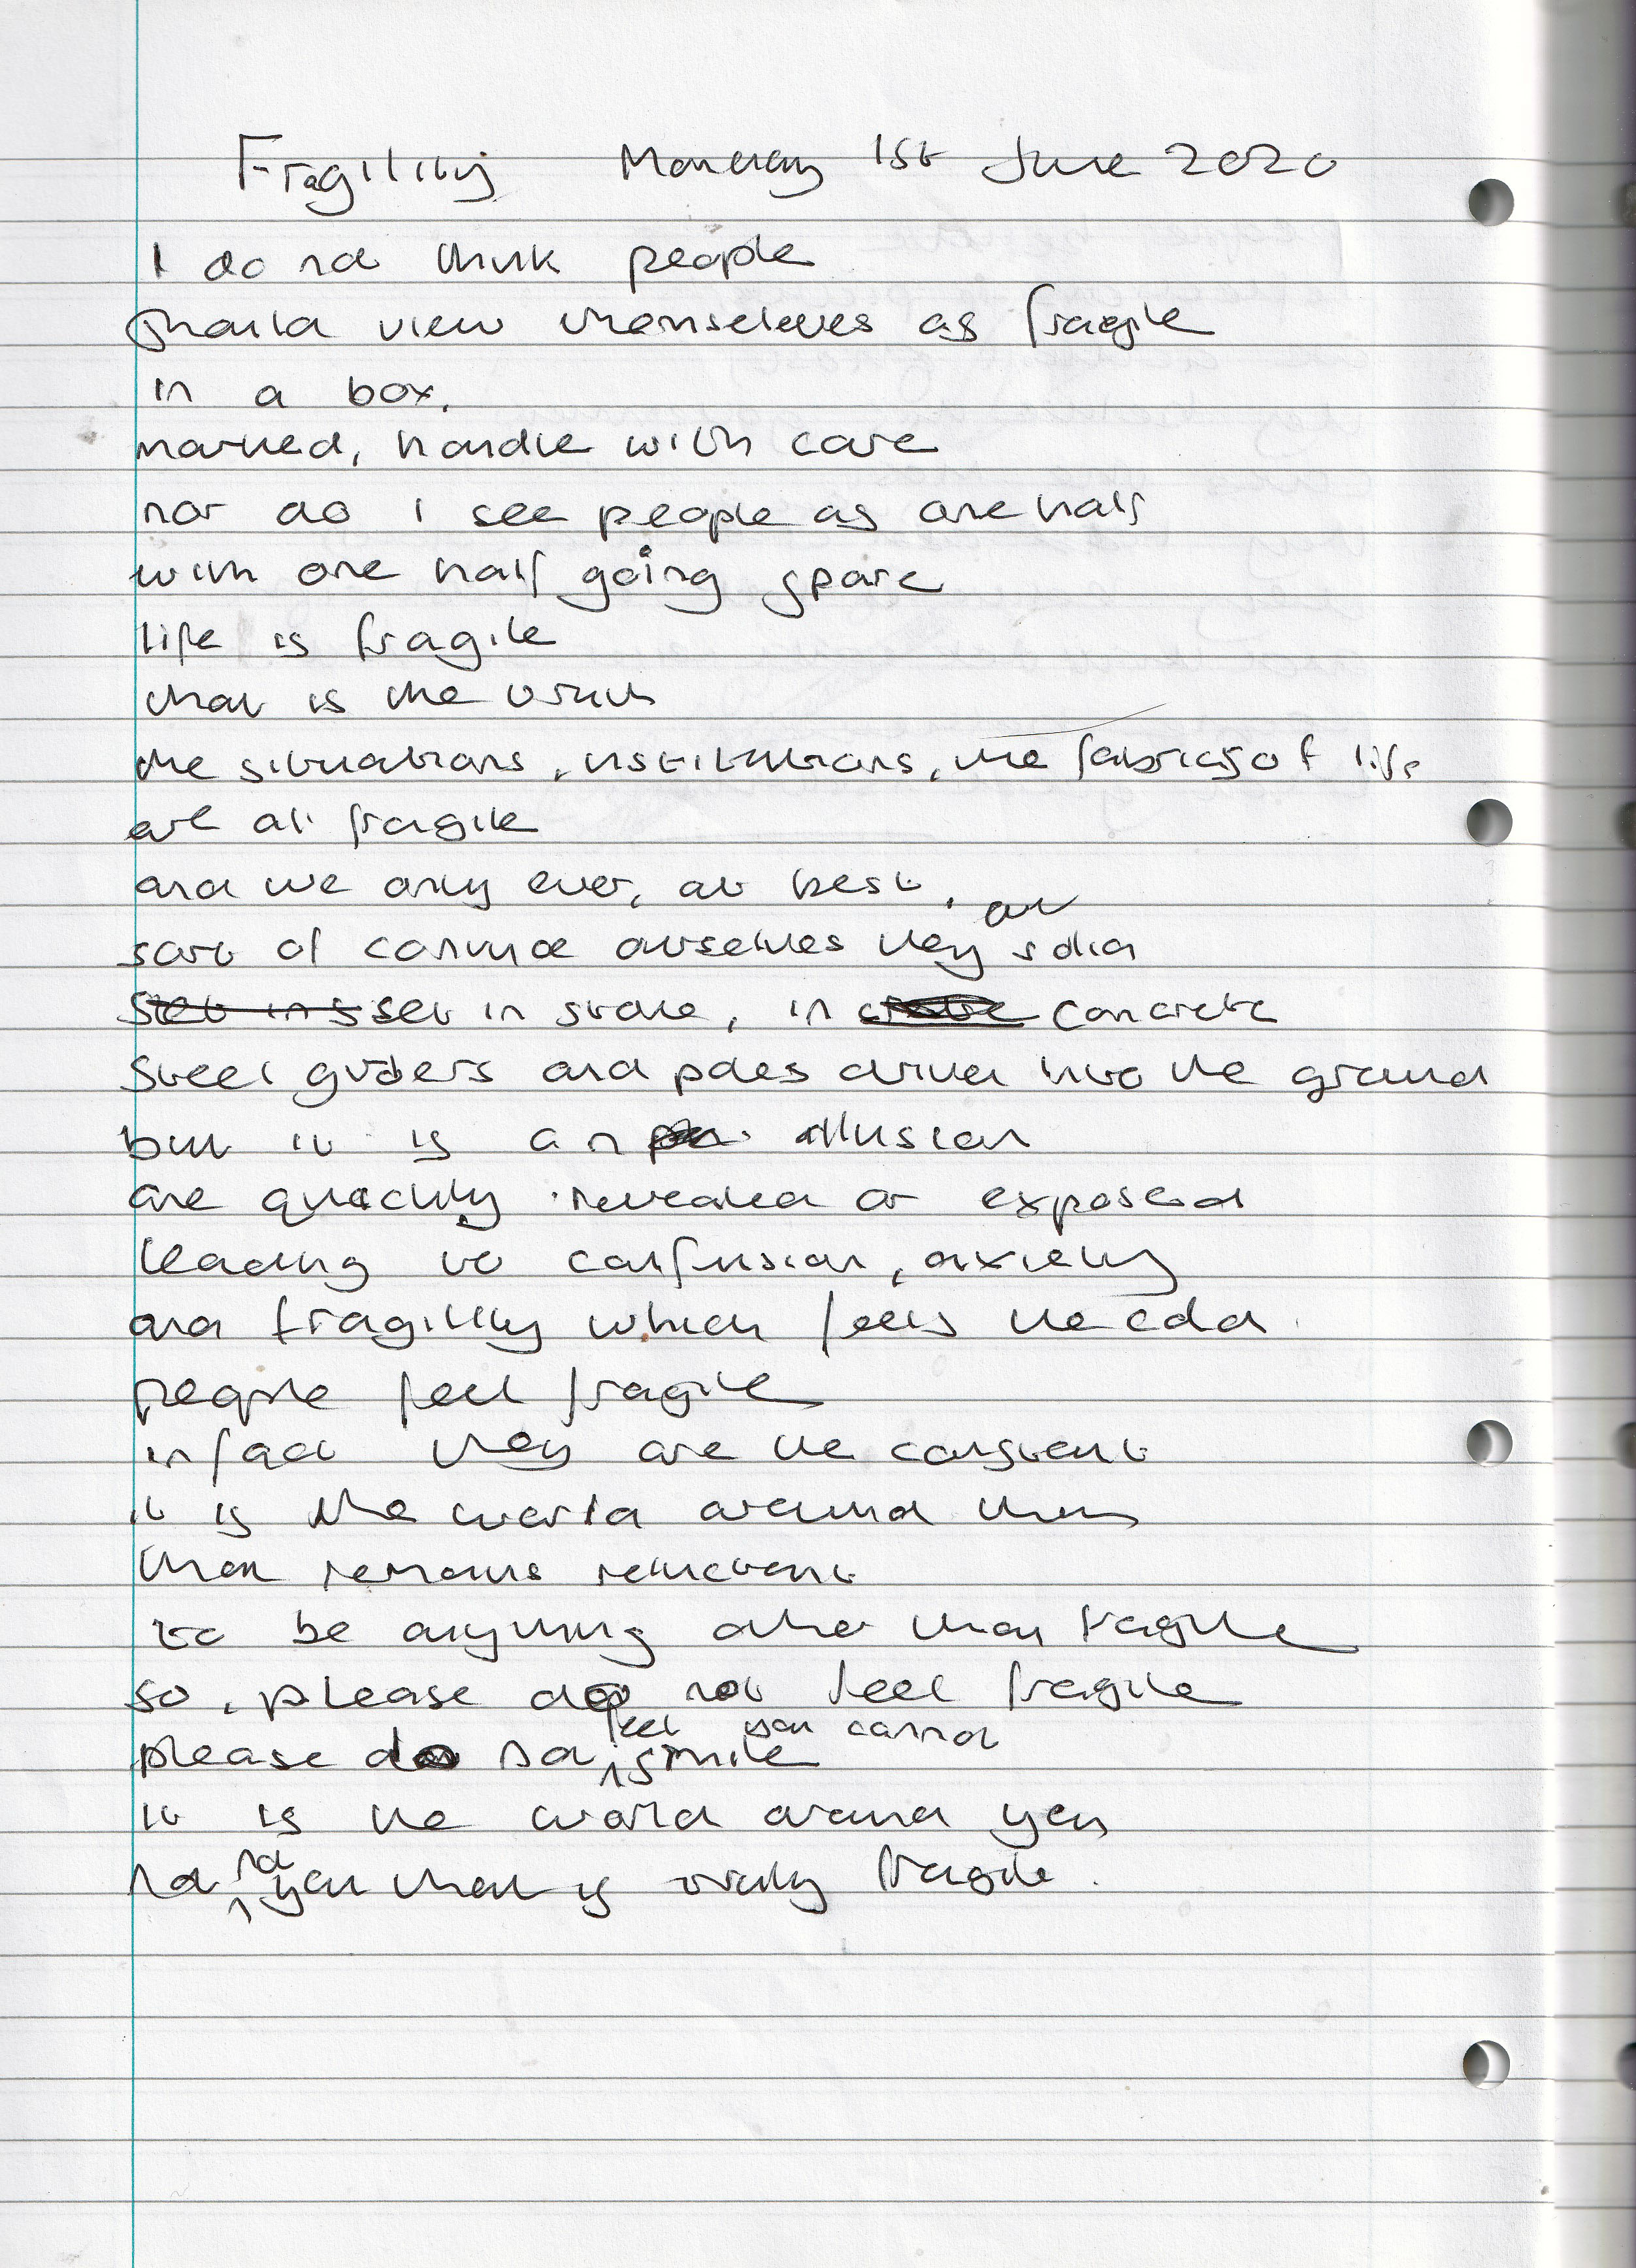 Fragility Monday 1st June 2020
I do not think people
should view themselves as fragile
in a box,
marked, handle with care
nor do I see people as one half
with one half going spare
life is fragile
that is the truth
the situations, institutions, the fabrics of life
are all fragile
and we only ever, at best,
sort of convince ourselves they are solid
set in stone, in concrete
steel girders and poles driven into the ground
but it is an illusion
are quickly revealed or exposed
leading to confusion, anxiety
and fragility which feels the cold.
people feel fragile
in fact they are the constant
it is the world around them
that remains reluctant
to be anything other than fragile
so, please do not feel fragile
please do not feel you cannot smile
it is the world around you
not you that is truly fragile.